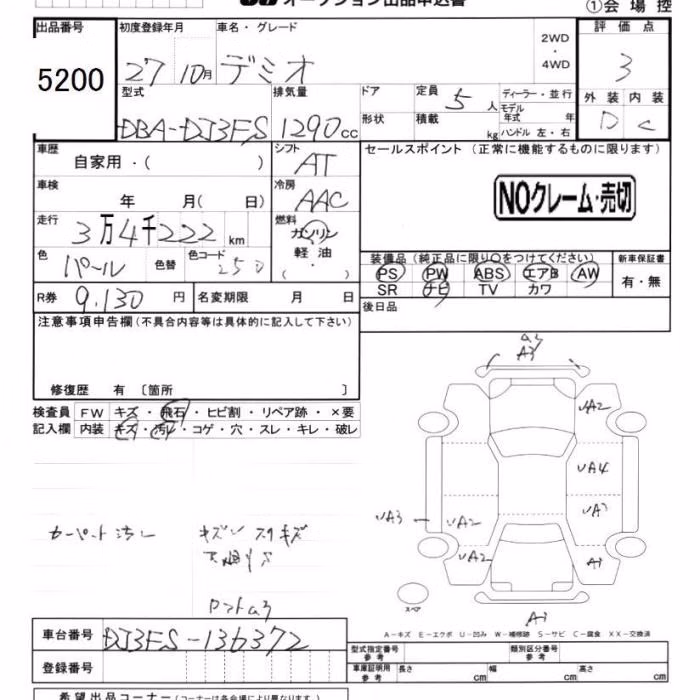 オークション出品申込書
①会場控
出品番号
5200
初度登録年月
27 10月
車名・グレード
デミオ
2WD
・
4WD
評価点
3
型式
DBA-DJ3FS
排気量
1290cc
ドア
形状
定員 5人
積載 kg
ディーラー・並行
モデル年式 年
ハンドル 左・右
外装 内装
D C
車歴
自家用・( )
シフト
AT
セールスポイント (正常に機能するものに限ります)
NOクレーム・売切
車検
年 月( 日)
冷房
AAC
走行
3万4千222km
燃料
ガソリン
軽油
・( ・ )
色
パール
色替
色コード
25D
装備品(純正品に限り○をつけてください)
新車保証書
PS PW ABS エアB AW
SR ナビ TV カワ
有・無
R券 9,130円
名変期限 月 日
後日品
注意事項申告欄(不具合内容等は具体的に記入して下さい)
修復歴 有 〔箇所 〕
検査員 FW キズ・飛石・ヒビ割・リペア跡・×要
記入欄 内装 キズ・汚れ・コゲ・穴・スレ・キレ・破レ
A3
UA2
UA4
UA3
UA2
UA2
A1
カーペット汚レ
キズ スリキズ
スペア
A1
A-キズ E-エクボ U-凹み W-補修跡 S-サビ C-腐食 XX-交換済
車台番号 DJ3FS-136372
登録番号
型式指定番号 参考
類別区分番号 参考
車庫証明用 参考 長さ cm 幅 cm 高さ cm
希望出品コーナー(コーナーは各会場により異なります)